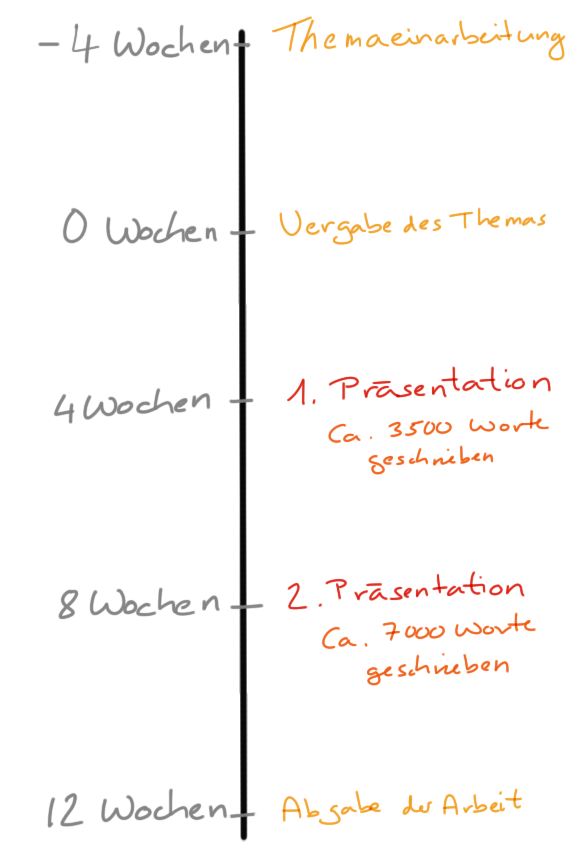 - 4 Wochen Themaeinarbeitung
0 Wochen Vergabe des Themas
4 Wochen 1. Präsentation
Ca. 3500 Worte
geschrieben
8 Wochen 2. Präsentation
Ca. 7000 Worte
geschrieben
12 Wochen Abgabe der Arbeit